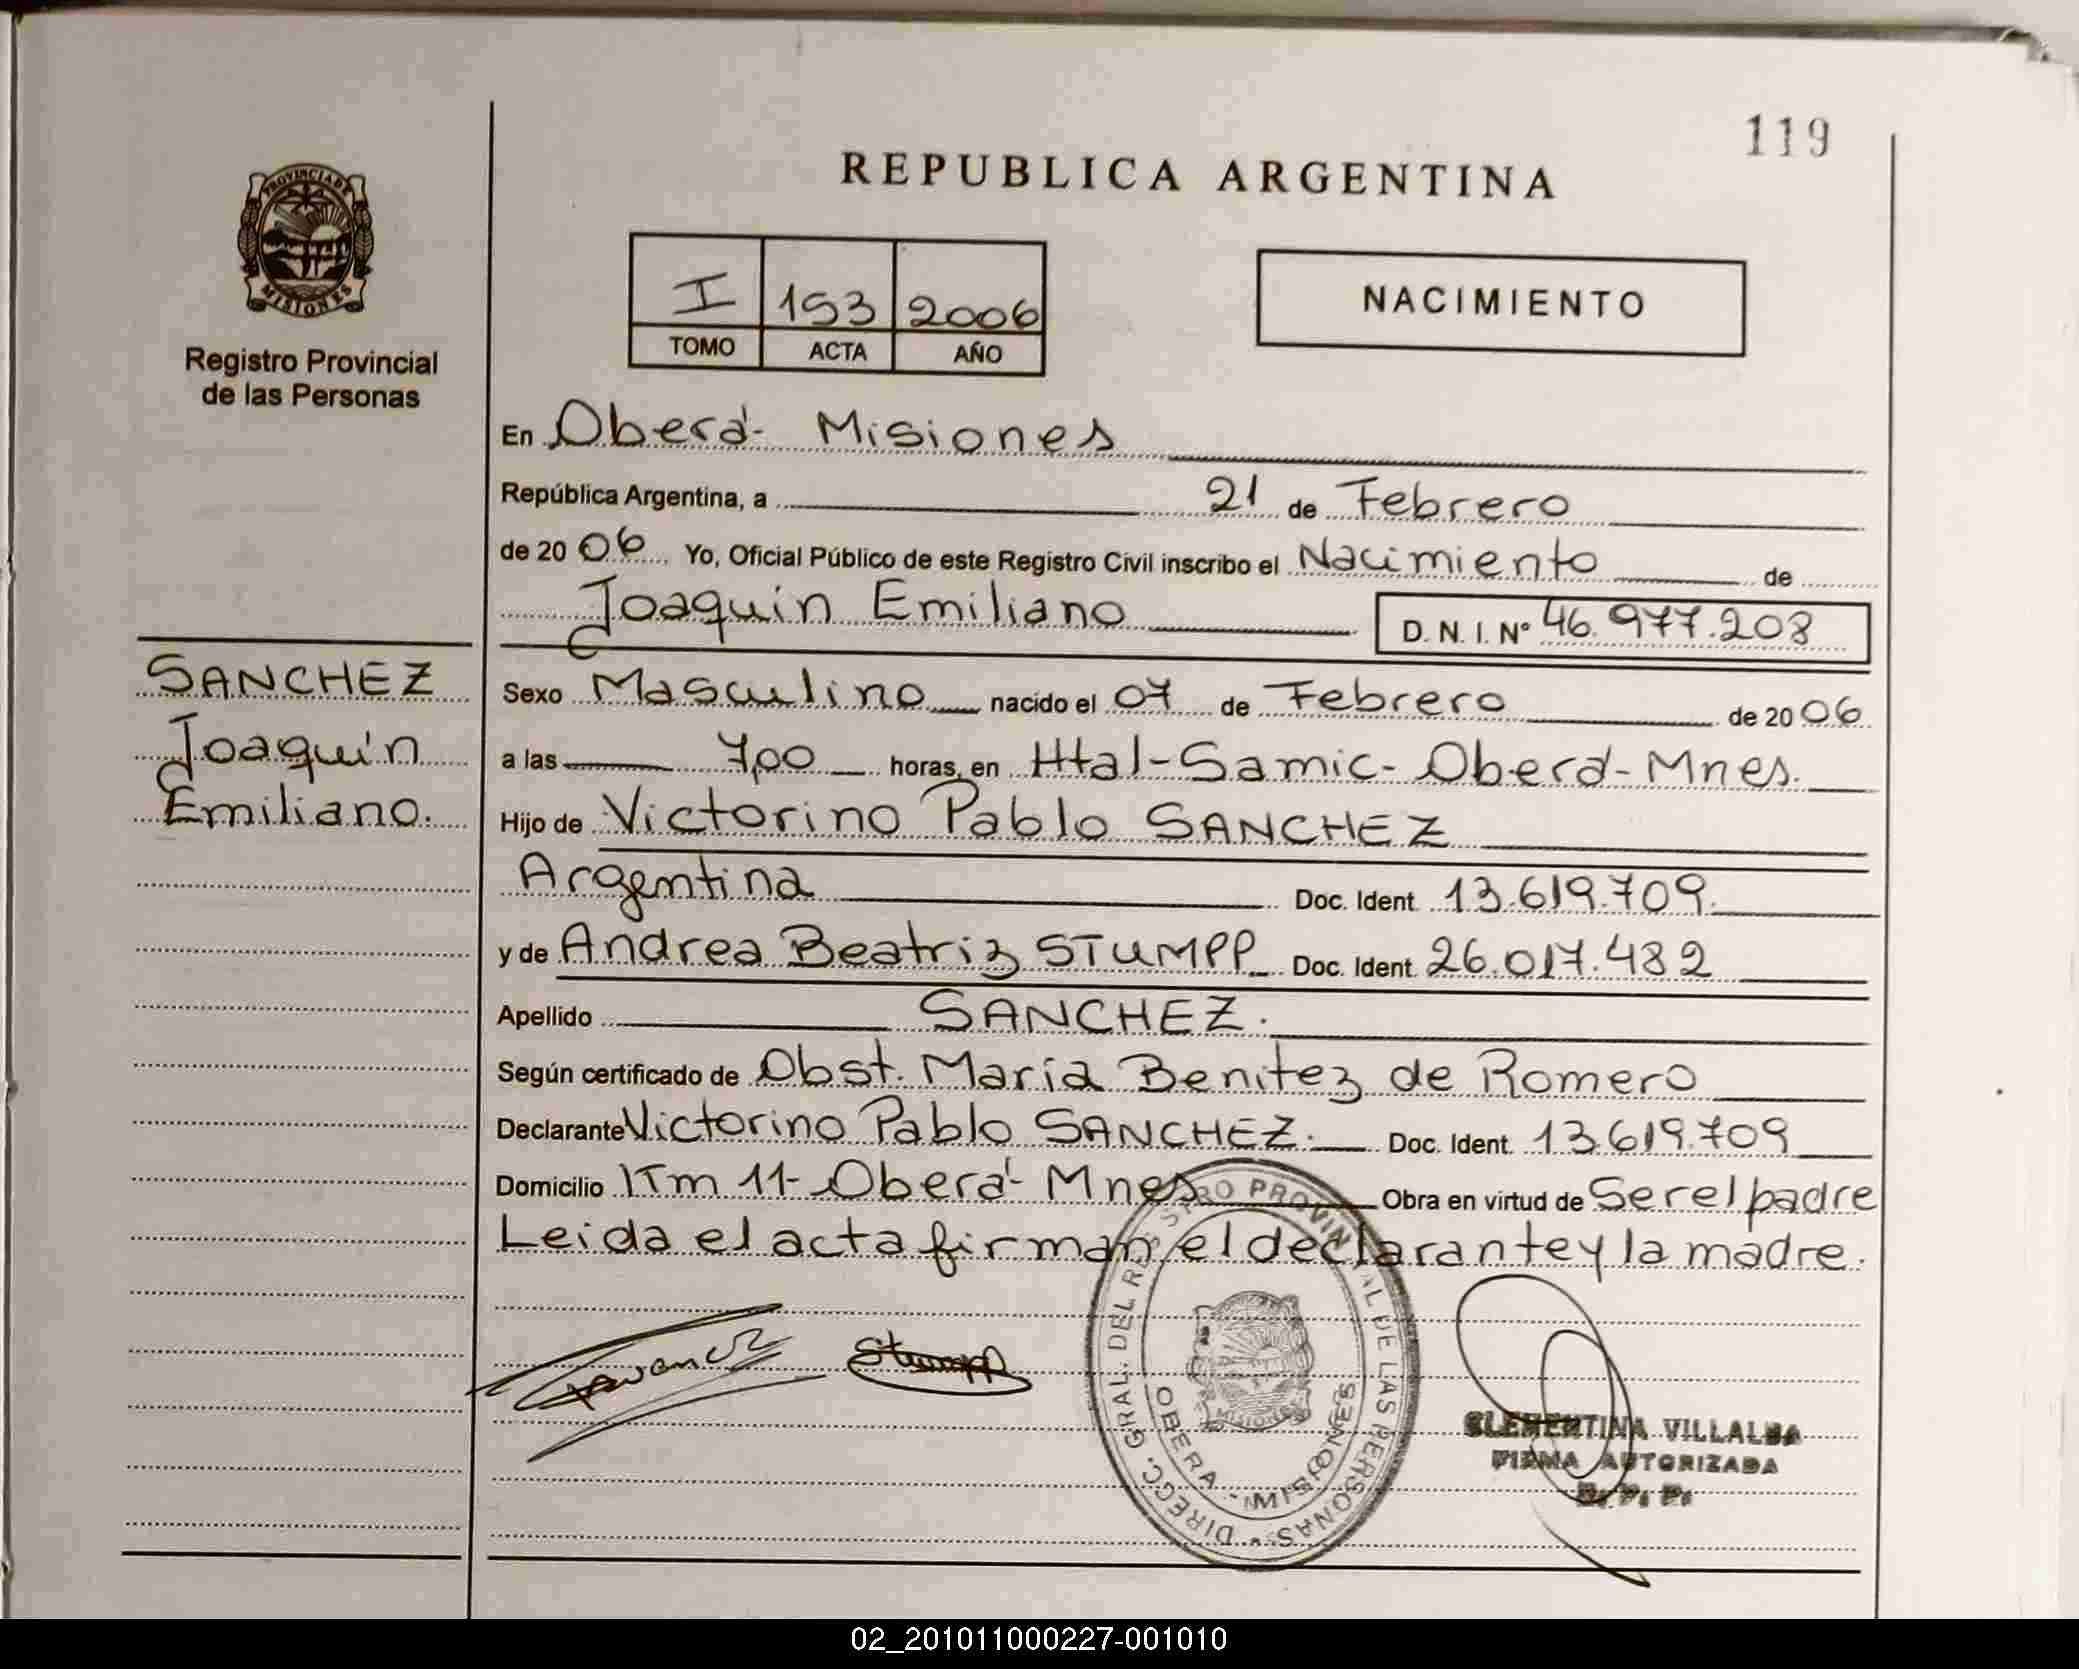 119
REPUBLICA ARGENTINA
PROVINCIA DE
MISIONES
Registro Provincial
de las Personas
I 153 2006
TOMO ACTA AÑO
NACIMIENTO
En Oberá- Misiones
República Argentina, a 21 de Febrero
de 20 06 Yo, Oficial Público de este Registro Civil inscribo el Nacimiento de
Joaquin Emiliano D. N. I. Nº 46.977.208
SANCHEZ
Joaquín
Emiliano.
Sexo Masculino nacido el 07 de Febrero de 20 06
a las 7,00 horas, en Htal-Samic- Oberá-Mnes.
Hijo de Victorino Pablo SANCHEZ
Argentina Doc. Ident. 13.619.709.
y de Andrea Beatriz STUMPP Doc. Ident. 26.017.482
Apellido SANCHEZ.
Según certificado de Obst. María Benitez de Romero
Declarante Victorino Pablo SANCHEZ. Doc. Ident. 13.619.709
Domicilio Km 11- Oberá- Mnes Obra en virtud de Ser el padre
Leida el acta firman, el declarante y la madre.
Stumpp
DIRECC. GRAL. DEL REGISTRO PROVINCIAL DE LAS PERSONAS
OBERA - MISIONES
MISIONES
CLEMENTINA VILLALBA
FIRMA AUTORIZADA
02_201011000227-001010